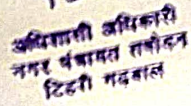 अधिशासी अधिकारी
नगर पंचायत तपोवन
टिहरी गढ़वाल